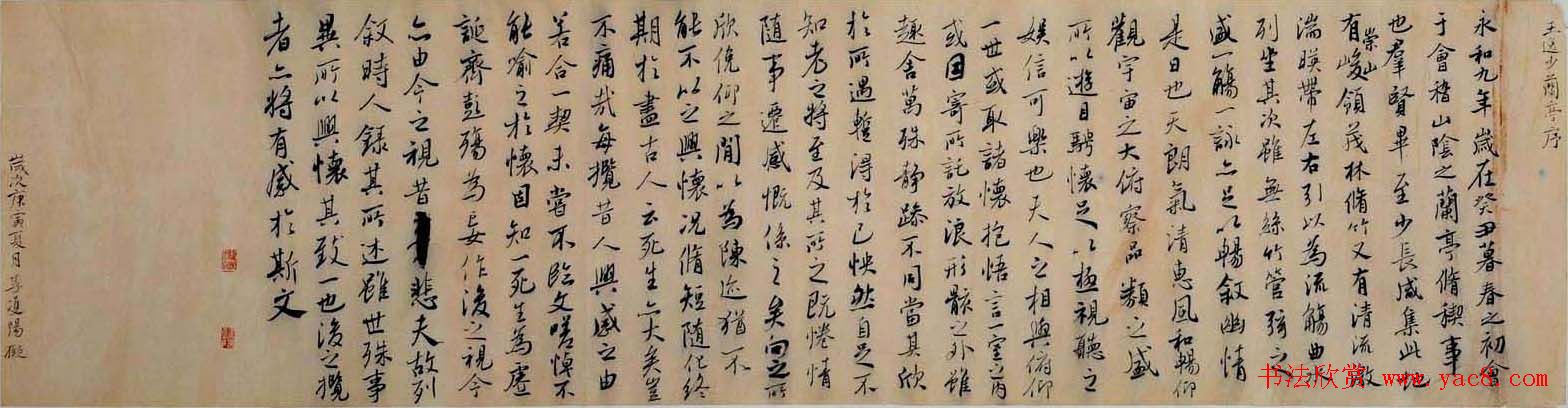 王逸少蘭亭序
永和九年歲在癸丑暮春之初會
于會稽山陰之蘭亭脩稧事
也羣賢畢至少長咸集此地
有崇山峻領茂林脩竹又有清流激
湍暎帶左右引以為流觴曲水
列坐其次雖無絲竹管弦之
盛一觴一詠亦足以暢敘幽情
是日也天朗氣清惠風和暢仰
觀宇宙之大俯察品類之盛
所以遊目騁懷足以極視聽之
娛信可樂也夫人之相與俯仰
一世或取諸懷抱悟言一室之內
或因寄所託放浪形骸之外雖
趣舍萬殊静躁不同當其欣
於所遇蹔得於己怏然自足不
知老之將至及其所之既惓情
隨事遷感慨係之矣向之所
欣俛仰之閒以為陳迹猶不
能不以之興懷況脩短隨化終
期於盡古人云死生亦大矣豈
不痛哉每攬昔人興感之由
若合一契未嘗不臨文嗟悼不
能喻之於懷固知一死生為虛
誕齊彭殤為妄作後之視今
亦由今之視昔悲夫故列
敘時人錄其所述雖世殊事
異所以興懷其致一也後之攬
者亦將有感於斯文
歲次庚寅夏月李
书法欣赏 www.yac8.com